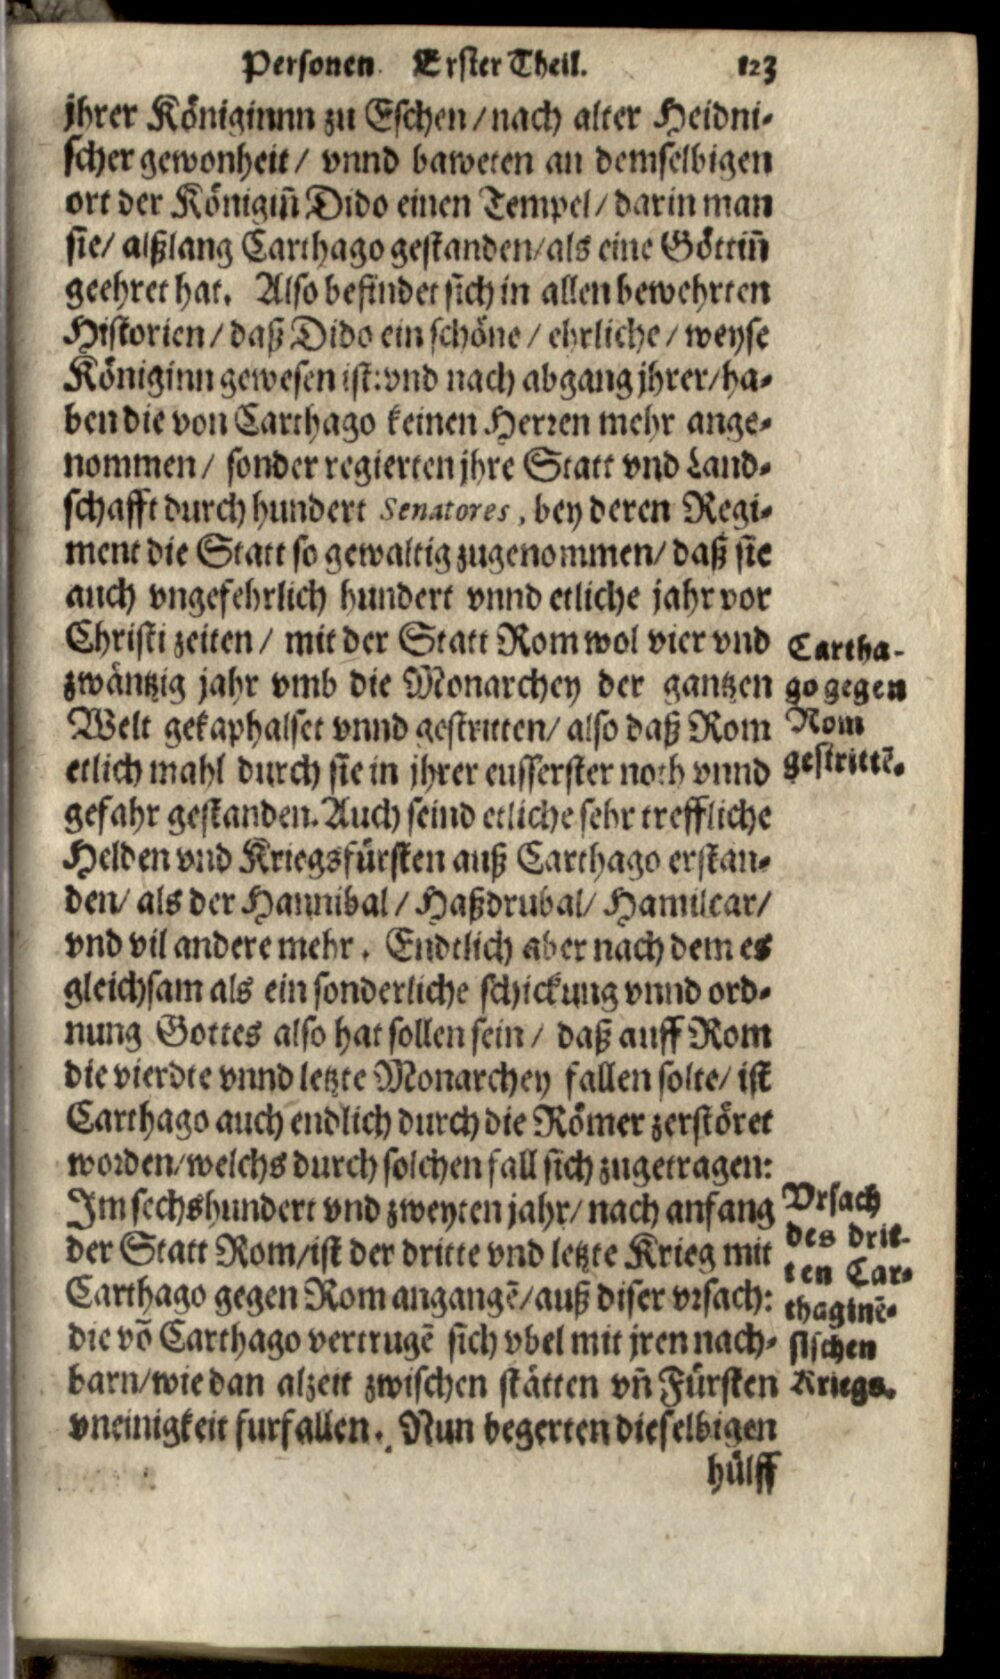 Personen. Erster Theil. 123
jhrer Königinnn zu Eschen / nach alter Heidni-
scher gewonheit / vnnd baweten an demselbigen
ort der Königiñ Dido einen Tempel / darin man
sie / alßlang Carthago gestanden / als eine Göttiñ
geehret hat. Also befindet sich in allen bewehrten
Historien / daß Dido ein schöne / ehrliche / weyse
Königinn gewesen ist: vnd nach abgang jhrer / ha-
ben die von Carthago keinen Herren mehr ange-
nommen / sonder regierten jhre Statt vnd Land-
schafft durch hundert Senatores, bey deren Regi-
ment die Statt so gewaltig zugenommen / daß sie
auch vngefehrlich hundert vnnd etliche jahr vor
Christi zeiten / mit der Statt Rom wol vier vnd
zwäntzig jahr vmb die Monarchey der gantzen
Welt gekaphalset vnnd gestritten / also daß Rom
etlich mahl durch sie in jhrer eusserster noth vnnd
gefahr gestanden. Auch seind etliche sehr treffliche
Helden vnd Kriegsfürsten auß Carthago erstan-
den / als der Hannibal / Haßdrubal / Hamilcar /
vnd vil andere mehr. Endtlich aber nach dem es
gleichsam als ein sonderliche schickung vnnd ord-
nung Gottes also hat sollen sein / daß auff Rom
die vierdte vnnd letzte Monarchey fallen solte / ist
Carthago auch endlich durch die Römer zerstöret
worden / welchs durch solchen fall sich zugetragen:
Im sechshundert vnd zweyten jahr / nach anfang
der Statt Rom / ist der dritte vnd letzte Krieg mit
Carthago gegen Rom angangē / auß diser vrsach:
die vō Carthago vertrugē sich vbel mit jren nach-
barn / wie dan alzeit zwischen stätten vñ Fürsten
vneinigkeit furfallen. Nun begerten dieselbigen
hülff
Cartha-
go gegen
Rom
gestrittē.
Vrsach
des drit-
ten Car-
thaginē-
sischen
Kriegs.